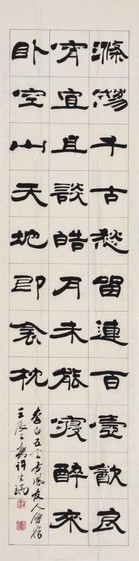 滌蕩千古愁留連百壺飲良
宵宜且談皓月未能寢醉來
臥空山天地即衾枕
李白五言古風友人會宿